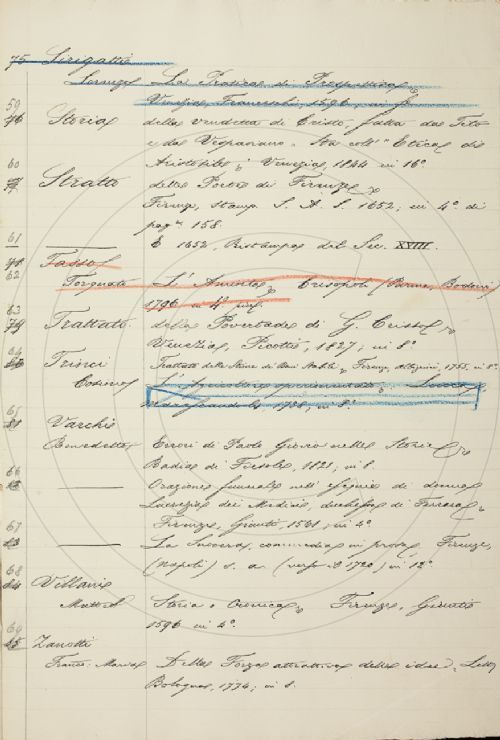 75 Sirigatti
Lorenzo La Pratica di Prospettiva
Venezia, Franceschi, 1596, in f.
59
76 Storia della vendetta di Cristo fatta da Tito
e da Vespasiano. Sta coll' "Etica di
Aristotile" Venezia, 1844 in 16°
60
77 Stratto delle Porte di Firenze
Firenze, stamp. S. A. S. 1652, in 4° di
pag. 158.
61
— È 1652, Ristampa del Sec. XVIII.
78 Tasso
62
Torquato L'Aminta Crisopoli (Parma, Bodoni)
1796 in 4°
63
79 Trattato della Povertade di G. Cristo
Venezia, Picotti, 1827; in 8°
64
80 Trinci Trattato delle Stime di Beni Stabili Firenze, 1755, in 8°
Cosimo L'Agricoltore sperimentato Lucca,
1726, in 8°
65
81 Varchi
Benedetto Errori di Paolo Giovio nelle Storie
Badia di Fiesole, 1821, in 8
66
82 — Orazione funerale nell'esequie di donna
Lucrezia dei Medici, duchessa di Ferrara
Firenze, Giunti, 1561, in 4°
67
83 — La Suocera, commedia in prosa, Firenze,
(Napoli) s. a. (verso il 1720) in 12°
68
84 Villani
Matteo Storia o Cronica Firenze, Giunti
1596 in 4°.
69
85 Zanotti
Franc. Maria Della Forza attrattiva delle idee,
Bologna, 1774; in 8.